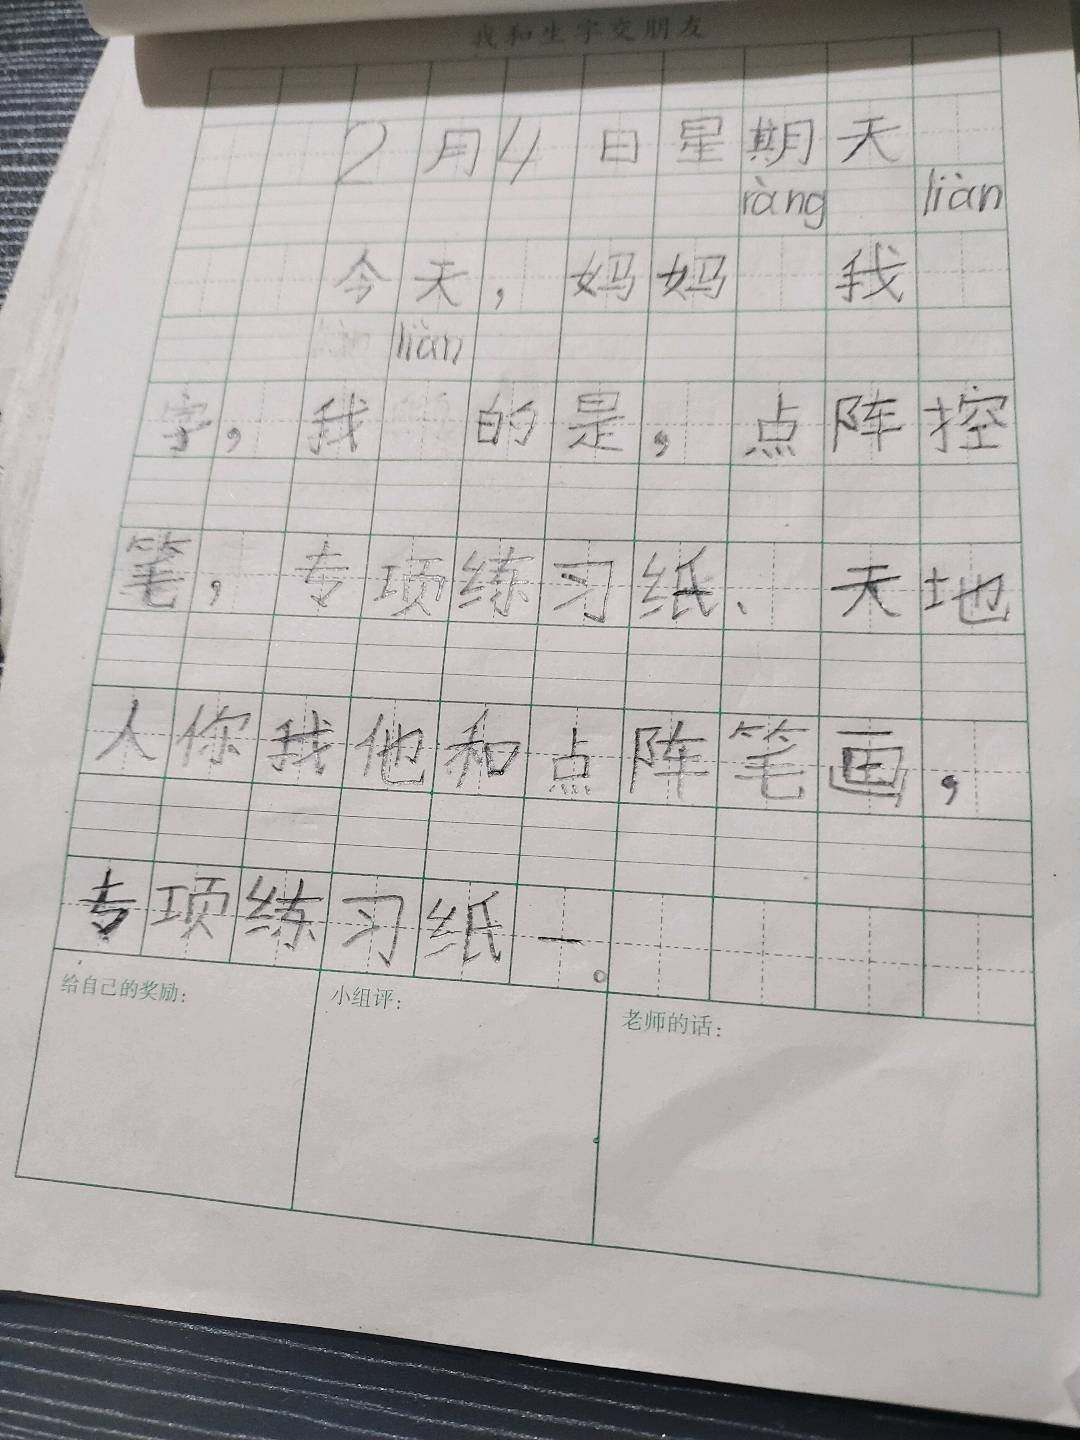 我和生字交朋友
2月4日星期天
ràng liàn
今天，妈妈 我
liàn
字，我 的是，点阵控
笔，专项练习纸、天地
人你我他和点阵笔画，
专项练习纸一。
给自己的奖励： 小组评： 老师的话：